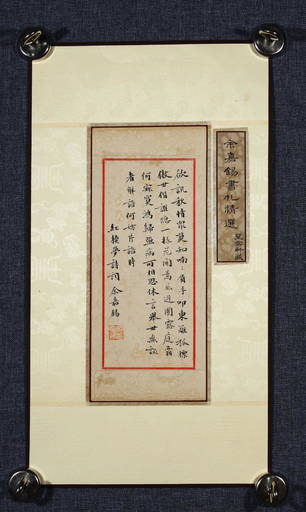 余嘉錫書札精選
欲訊秋情眾莫知喃々負手叩東籬孤標
傲世偕誰隱一樣花開為底遲圃露庭霜
何寂寞鴻歸蛩病可相思休言舉世無談
者解語何妨片語時
紅樓夢詩詞 余嘉錫